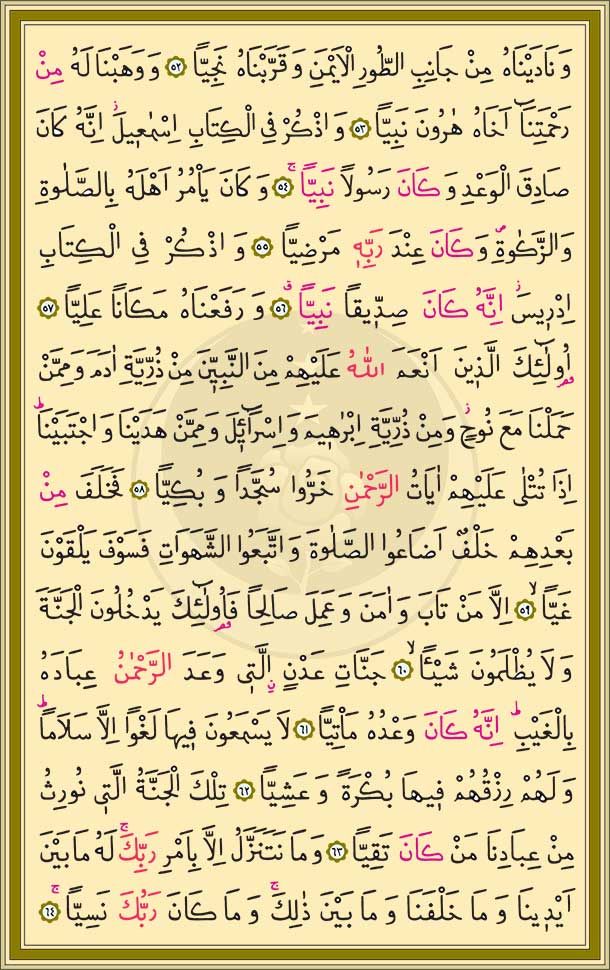 وَنَادَيْنَاهُ مِنْ جَانِبِ الطُّورِ الْاَيْمَنِ وَقَرَّبْنَاهُ نَجِيًّا ﴿٥٢﴾ وَوَهَبْنَا لَهُ مِنْ
رَحْمَتِنَٓا اَخَاهُ هٰرُونَ نَبِيًّا ﴿٥٣﴾ وَاذْكُرْ فِي الْكِتَابِ اِسْمٰع۪يلَۘ اِنَّهُ كَانَ
صَادِقَ الْوَعْدِ وَكَانَ رَسُولًا نَبِيًّاۚ ﴿٥٤﴾ وَكَانَ يَأْمُرُ اَهْلَهُ بِالصَّلٰوةِ
وَالزَّكٰوةِۖ وَكَانَ عِنْدَ رَبِّه۪ مَرْضِيًّا ﴿٥٥﴾ وَاذْكُرْ فِي الْكِتَابِ
اِدْر۪يسَۘ اِنَّهُ كَانَ صِدّ۪يقًا نَبِيًّاۗ ﴿٥٦﴾ وَرَفَعْنَاهُ مَكَانًا عَلِيًّا ﴿٥٧﴾
اُو۬لٰٓئِكَ الَّذ۪ينَ اَنْعَمَ اللّٰهُ عَلَيْهِمْ مِنَ النَّبِيّ۪نَ مِنْ ذُرِّيَّةِ اٰدَمَ وَمِمَّنْ
حَمَلْنَا مَعَ نُوحٍۘ وَمِنْ ذُرِّيَّةِ اِبْرٰه۪يمَ وَاِسْرَٓائ۪لَ وَمِمَّنْ هَدَيْنَا وَاجْتَبَيْنَاۜ
اِذَا تُتْلٰى عَلَيْهِمْ اٰيَاتُ الرَّحْمٰنِ خَرُّوا سُجَّدًا وَبُكِيًّا ﴿٥٨﴾ فَخَلَفَ مِنْ
بَعْدِهِمْ خَلْفٌ اَضَاعُوا الصَّلٰوةَ وَاتَّبَعُوا الشَّهَوَاتِ فَسَوْفَ يَلْقَوْنَ
غَيًّاۙ ﴿٥٩﴾ اِلَّا مَنْ تَابَ وَاٰمَنَ وَعَمِلَ صَالِحًا فَاُو۬لٰٓئِكَ يَدْخُلُونَ الْجَنَّةَ
وَلَا يُظْلَمُونَ شَيْـًٔاۙ ﴿٦٠﴾ جَنَّاتِ عَدْنٍۨ الَّت۪ي وَعَدَ الرَّحْمٰنُ عِبَادَهُ
بِالْغَيْبِۜ اِنَّهُ كَانَ وَعْدُهُ مَأْتِيًّا ﴿٦١﴾ لَا يَسْمَعُونَ ف۪يهَا لَغْوًا اِلَّا سَلَامًاۜ
وَلَهُمْ رِزْقُهُمْ ف۪يهَا بُكْرَةً وَعَشِيًّا ﴿٦٢﴾ تِلْكَ الْجَنَّةُ الَّت۪ي نُورِثُ
مِنْ عِبَادِنَا مَنْ كَانَ تَقِيًّا ﴿٦٣﴾ وَمَا نَتَنَزَّلُ اِلَّا بِاَمْرِ رَبِّكَۚ لَهُ مَا بَيْنَ
اَيْد۪ينَا وَمَا خَلْفَنَا وَمَا بَيْنَ ذٰلِكَۚ وَمَا كَانَ رَبُّكَ نَسِيًّاۚ ﴿٦٤﴾